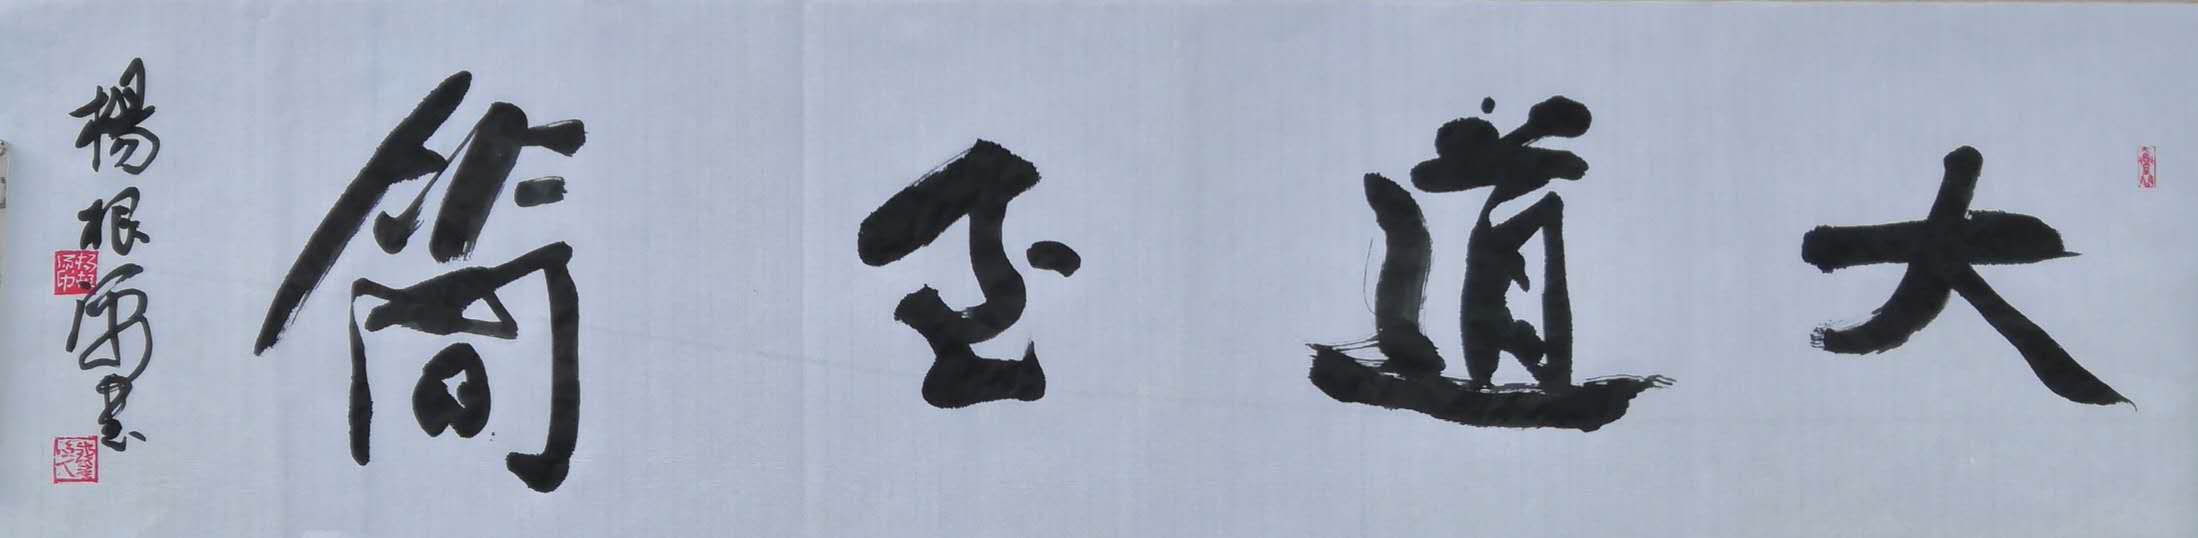 大道至简
楊根源書